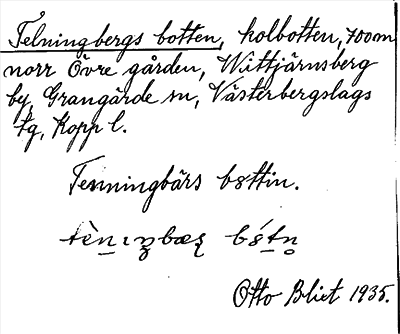 Felningbergs botten, holbotten, 700 m
norr Övre gården, Wittjärnsberg
by, Grangärde sn, Västerbergslags
tg, Kopp l.
Tenningbärs bottin.
Otto Blixt 1935.